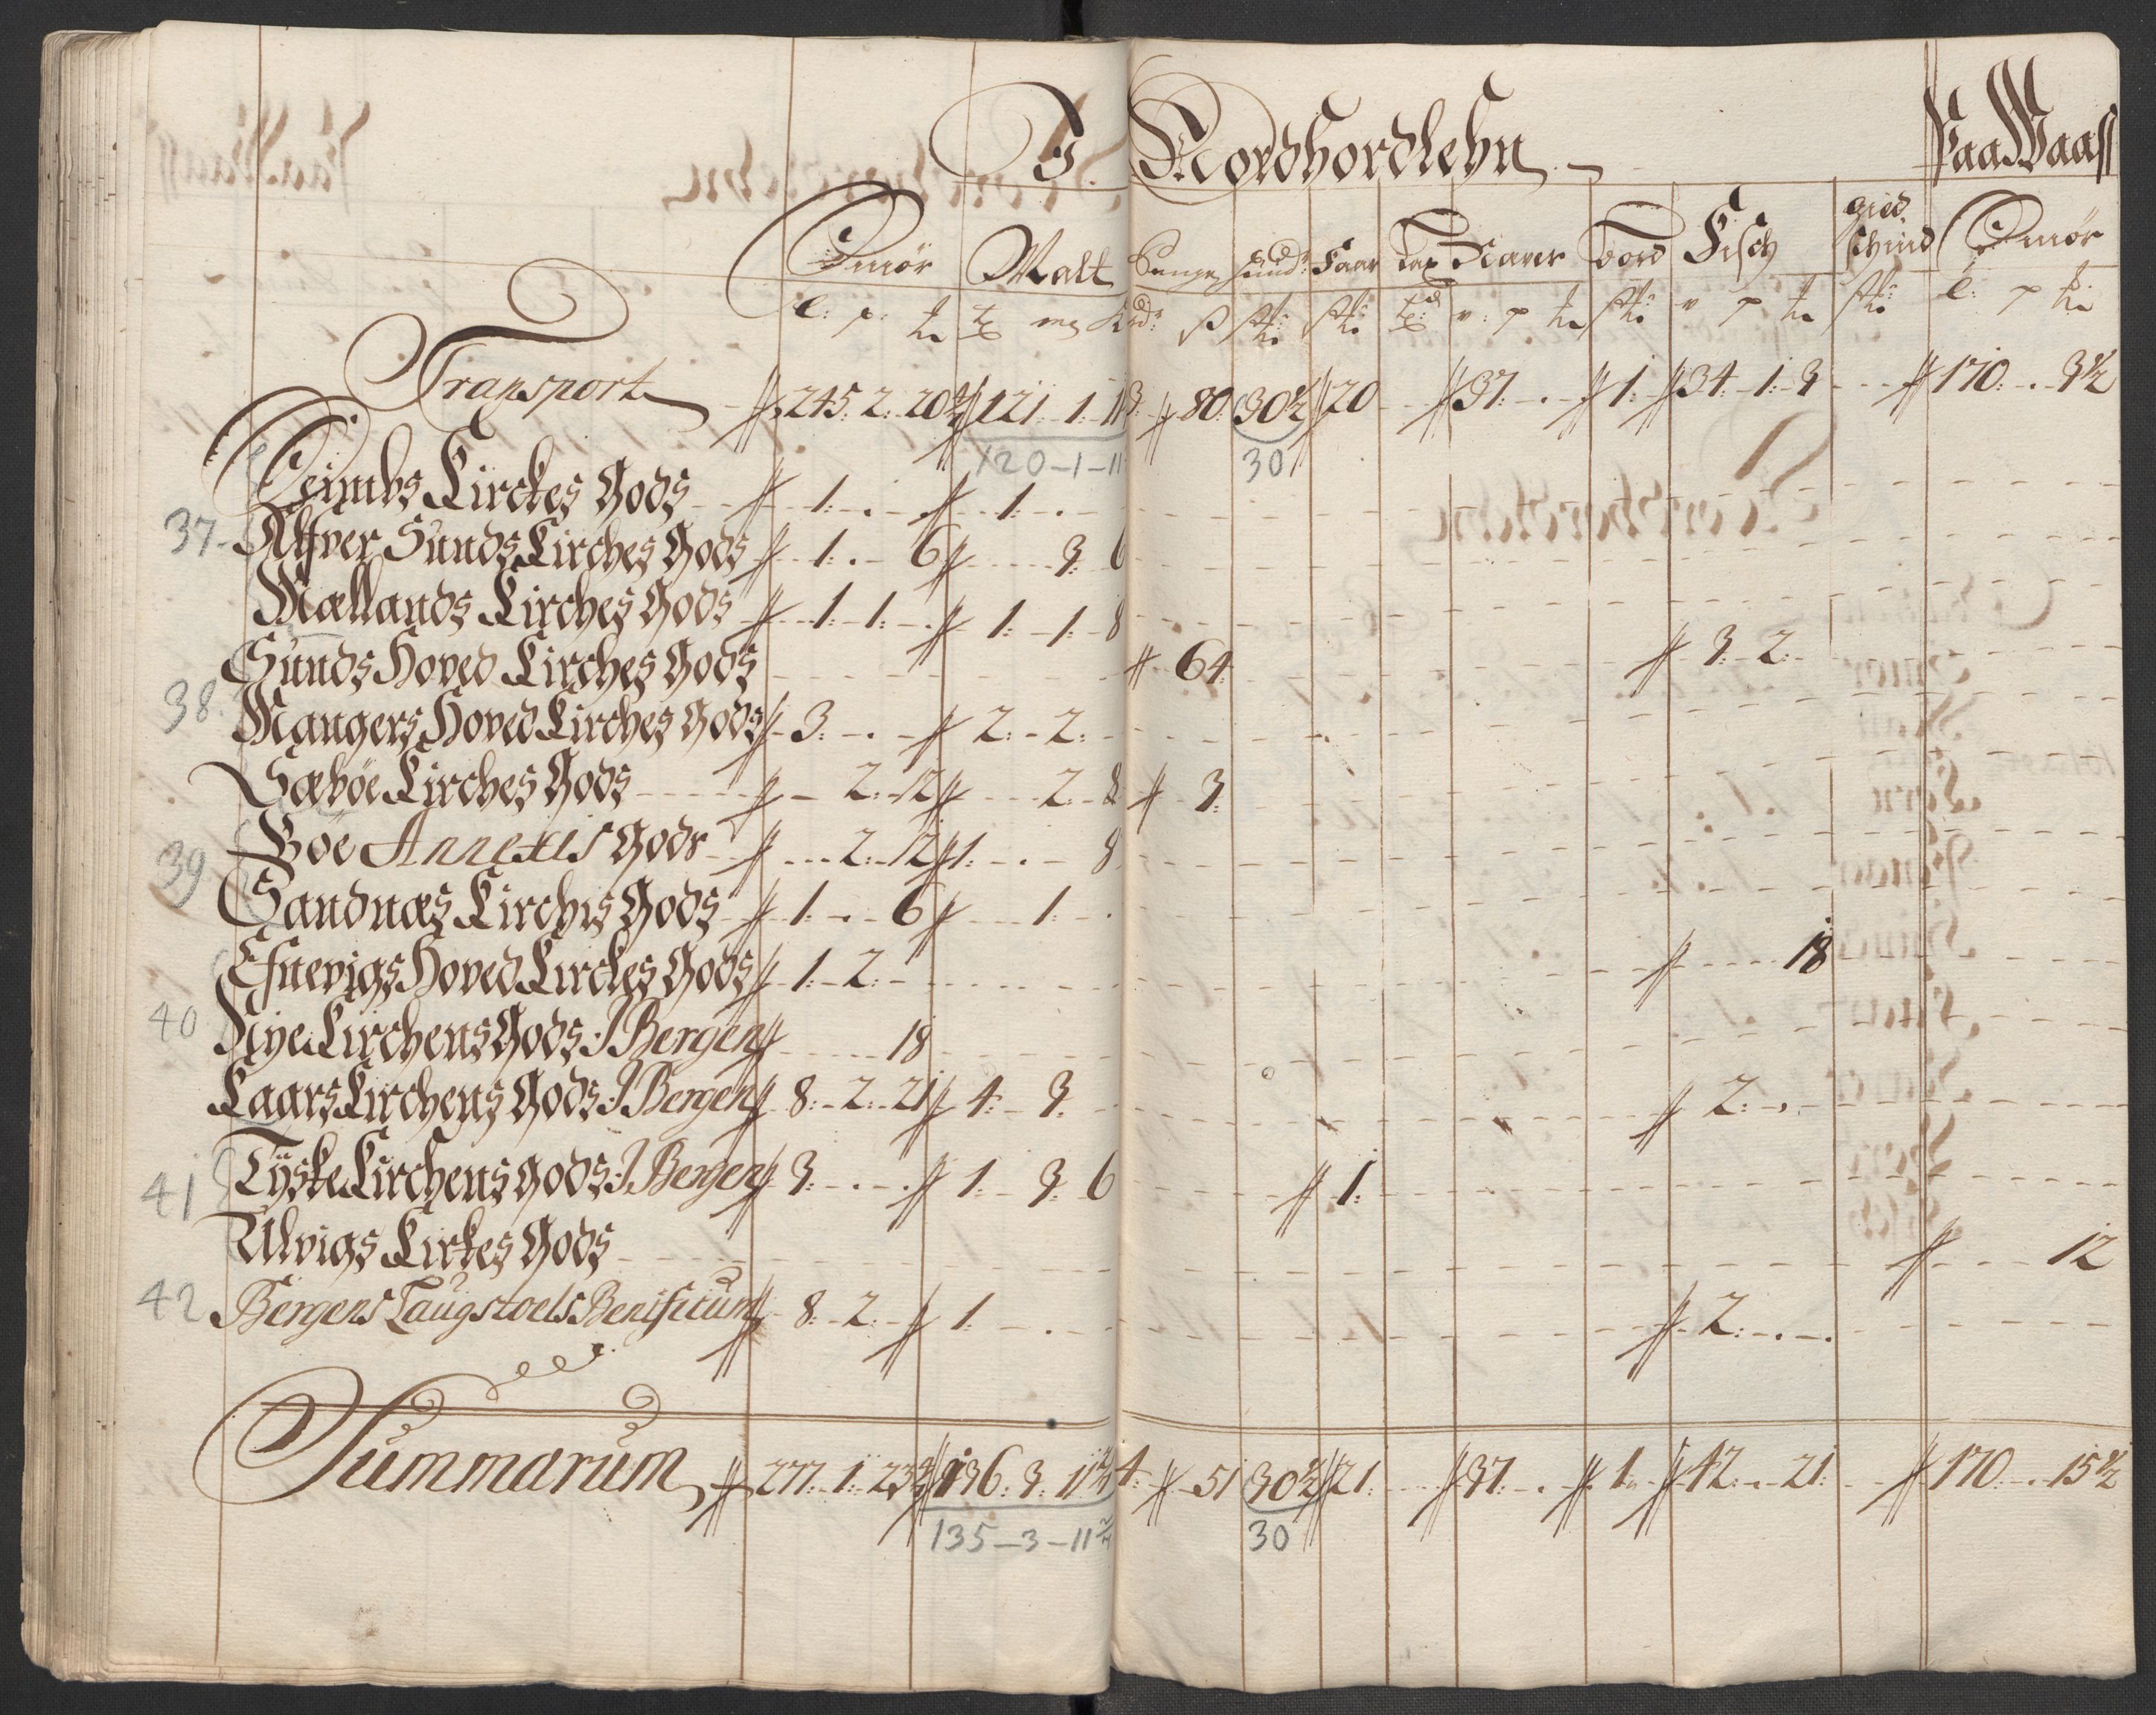 I Nordhordlehn Paa Waass
Smör Malt Penge hud: Faar Taver Tord Fisch gied schind Smör
Transport 245. 2. 20 121. 1. 11 3 80. 30½ 20 37. . 1. 34. 1. 3 170. . 3½
120-1-11 30
Seimbs Kirckes Gods 1. . . 1. .
37. Alfver Sunds Kirches Gods 1. . 6 3. 6
Mællands Kirches Gods 1. 1. . 1. 1. 8
Sunds Hoved Kirches Gods 64 3. 2.
38. Mangers Hoved Kirches Gods 3. . 2. 2.
Sæbøe Kirches Gods 2. 12 2. 8 3.
Böe Annexes Gods 2. 12 1. . 8
39 Sandnæs Kirches Gods 1. . 6 1. .
Efnevigs Hoved Kirckes Gods 1. 2. 18
40 Nye Kirchens Gods. I Bergen 18
Laars Kirchens Gods. I Bergen 8. 2. 21 4. 3. 2. .
41 Tÿske Kirchens Gods. I Bergen 3. . . 1. 3. 6 1.
Ulvigs Kirkes Gods 12
42 Bergens Laugstoels Benificium 8. 2. 1. . 2. . .
Summarum 277. 1. 23 136. 3. 11 4. 51 30½ 21. 37. . 1. 42. . 21. 170. . 15½
135-3-11 30